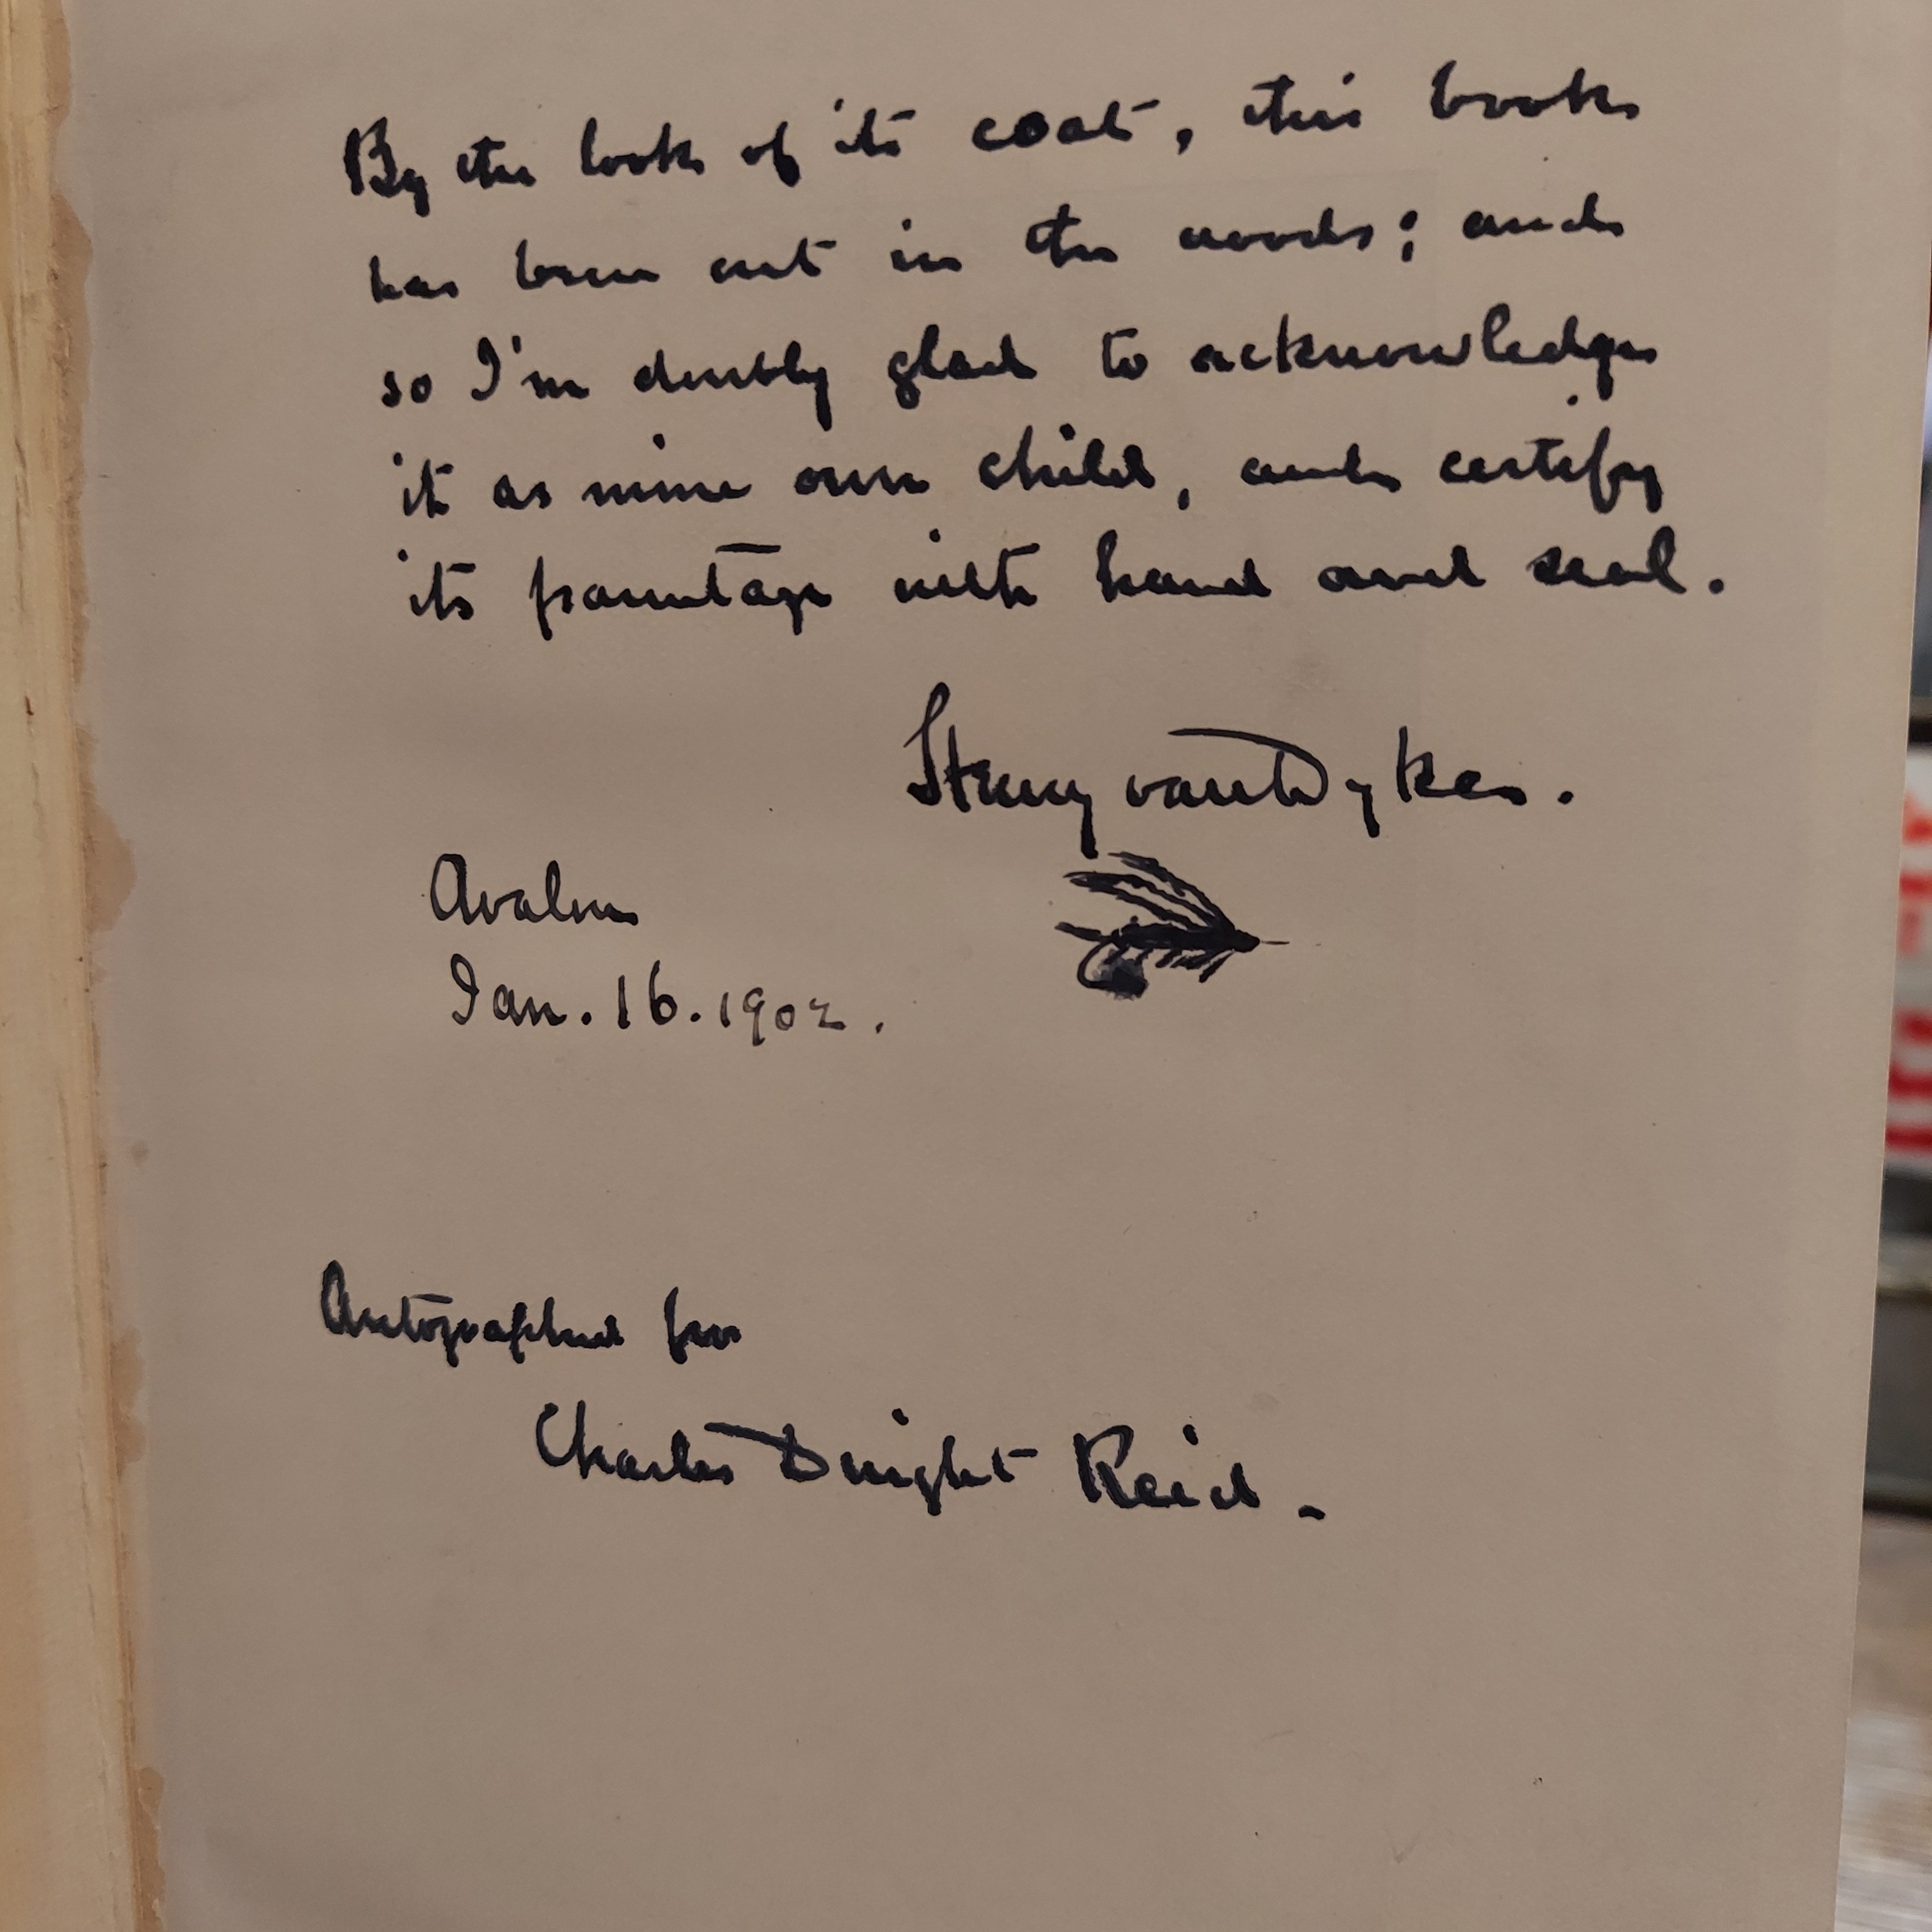 By the look of its coat, this book
has been out in the woods; and
so I'm doubly glad to acknowledge
it as mine own child, and certify
its parentage with hand and seal.
Henry van Dyke.
Avalon
Jan. 16. 1902.
Autographed for
Charles Dwight Reid.